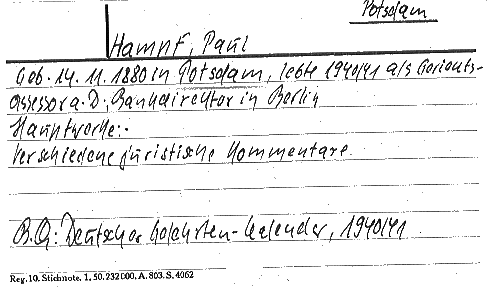 Potsdam
Hampf, Paul
Geb. 14. 11. 1880 in Potsdam, lebte 1940/41 als Gerichts-
assessor a. D., Bankdirektor in Berlin
Hauptwerke:
Verschiedene juristische Kommentare.
B.Q: Deutscher Gelehrten-Kalender, 1940/41
Reg. 10. Stichnote. 1. 50. 232 000. A. 803. S. 4062